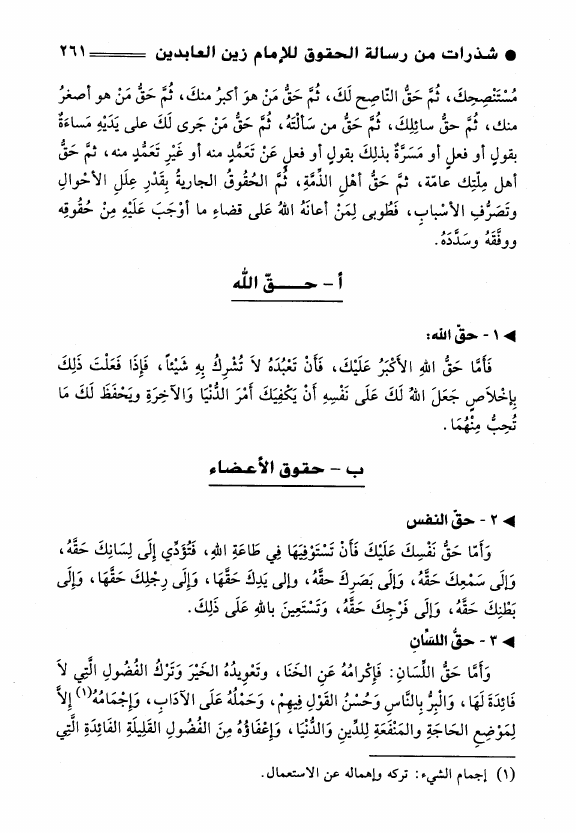 ● شذرات من رسالة الحقوق للإمام زين العابدين ٢٦١
مُسْتَنْصِحِكَ، ثُمَّ حَقُّ النّاصِحِ لَكَ، ثُمَّ حَقُّ مَنْ هوَ أكبرُ منكَ، ثُمَّ حَقُّ مَنْ هو أصغرُ
منك، ثُمَّ حقُّ سائِلِكَ، ثُمَّ حَقُّ من سَألْتَهُ، ثُمَّ حَقُّ مَنْ جَرى لَكَ على يَدَيْهِ مَساءَةٌ
بقولٍ أو فعلٍ أو مَسَرَّةٌ بذلِكَ بقولٍ أو فعلٍ عَنْ تَعَمُّدٍ منه أو غَيْرِ تَعَمُّدٍ منه، ثم حَقُّ
أهل مِلّتِك عامّة، ثم حَقُّ أهلِ الذِّمَّةِ، ثُم الحُقُوقُ الجاريةُ بِقَدْرِ عِلَلِ الأحوالِ
وتَصَرُّفِ الأسْبابِ، فَطُوبى لِمَنْ أعانَهُ اللهُ على قضاءِ ما أوْجَبَ عَلَيْهِ مِنْ حُقُوقِه
ووفَّقَهُ وسَدَّدَهُ.
أ - حــق الله
◄ ١ - حقّ الله:
فَأَمَّا حَقُّ اللهِ الأَكْبَرُ عَلَيْكَ، فَأَنْ تَعْبُدَهُ لاَ تُشْرِكُ بِهِ شَيْئاً، فَإِذَا فَعَلْتَ ذَلِكَ
بِإِخْلاَصٍ جَعَلَ اللهُ لَكَ عَلَى نَفْسِهِ أَنْ يَكْفِيَكَ أَمْرَ الدُّنْيَا وَالآخِرَةِ ويَحْفَظَ لَكَ مَا
تُحِبُّ مِنْهُمَا.
ب - حقوق الأعضاء
◄ ٢ - حقّ النفس
وَأَمَّا حَقُّ نَفْسِكَ عَلَيْكَ فَأَنْ تَسْتَوْفِيَهَا فِي طَاعَةِ اللهِ، فَتُؤَدِّي إِلَى لِسَانِكَ حَقَّهُ،
وَإِلَى سَمْعِكَ حَقَّهُ، وَإِلَى بَصَرِكَ حقَّهُ، وإلى يَدِكَ حَقَّهَا، وَإِلَى رِجْلِكَ حَقَّهَا، وَإِلَى
بَطْنِكَ حَقَّهُ، وَإِلَى فَرْجِكَ حَقَّهُ، وَتَسْتَعِينَ بِاللهِ عَلَى ذَلِكَ.
◄ ٣ - حقُّ اللسَّانِ
وَأَمَّا حَقُّ اللِّسَانِ: فَإِكْرَامُهُ عَنِ الخَنَا، وتَعْوِيدُهُ الخَيْرَ وَتَرْكُ الفُضُولِ الَّتِي لاَ
فَائِدَةَ لَهَا، وَالْبِرُّ بِالنَّاسِ وَحُسْنُ القَوْلِ فِيهِمْ، وَحَمْلُهُ عَلَى الآدَابِ، وَإِجْمَامُهُ(١) إِلاَّ
لِمَوْضِعِ الحَاجَةِ والمَنْفَعَةِ لِلدِّينِ وَالدُّنْيَا، وَإِعْفَاؤُهُ مِنَ الفُضُولِ القَلِيلَةِ الفَائِدَةِ الَّتِي
(١) إجمام الشيء: تركه وإهماله عن الاستعمال.